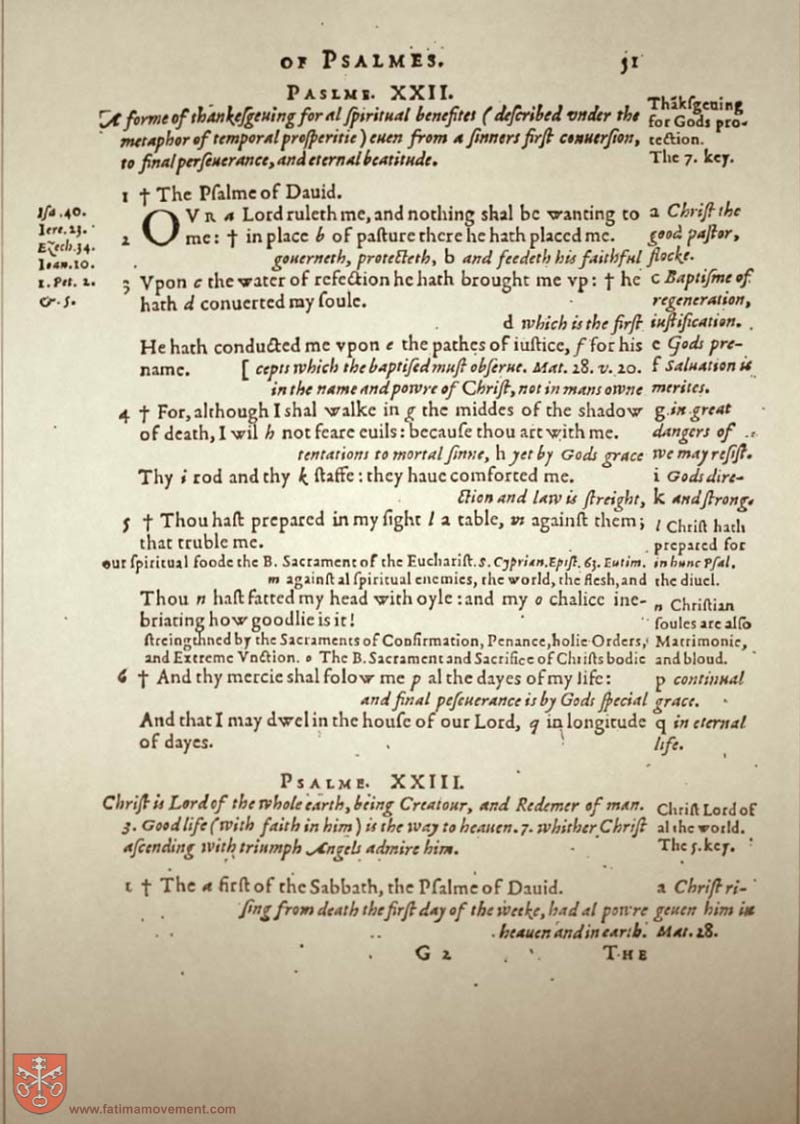 OF PSALMES. 51
PASLME. XXII.
A forme of thankeſgeuing for al ſpiritual benefites (deſcribed vnder the
metaphor of temporal proſperitie) euen from a ſinners firſt conuerſion,
to final perſeuerance, and eternal beatitude.
Thākſgeuing
for Gods pro-
tection.
The 7. key.
1 † The Pſalme of Dauid.
Iſa. 40.
Iere. 23.
Ezech. 34.
Ioan. 10.
1. Pet. 2.
& 5.
OVR a Lord ruleth me, and nothing shal be wanting to a Chriſt the
2 me: † in place b of paſture there he hath placed me. good paſtor,
gouerneth, protecteth, b and feedeth his faithful flocke.
3 Vpon c the water of refection he hath brought me vp: † he c Baptiſme of
hath d conuerted my ſoule. regeneration,
d which is the firſt iuſtification.
He hath conducted me vpon e the pathes of iuſtice, f for his e Gods pre-
name. [cepts which the baptiſed muſt obſerue. Mat. 28. v. 20. f Saluation is
in the name and powre of Chriſt, not in mans owne merites.
4 † For, although I shal walke in g the middes of the shadow g in great
of death, I wil h not feare euils: becauſe thou art with me. dangers of
tentations to mortal ſinne, h yet by Gods grace we may reſiſt.
Thy i rod and thy k ſtaffe: they haue comforted me. i Gods dire-
ction and law is ſtreight, k and ſtrong.
5 † Thou haſt prepared in my ſight l a table, m againſt them; l Chriſt hath
that truble me. prepared for
our ſpiritual foode the B. Sacrament of the Euchariſt. S. Cyprian. Epiſt. 63. Eutim. in hunc Pſal.
m againſt al ſpiritual enemies, the world, the fleſh, and the diuel.
Thou n haſt fatted my head with oyle: and my o chalice ine- n Chriſtian
briating how goodlie is it! ſoules are alſo
ſtreingthned by the Sacraments of Confirmation, Penance, holie Orders, Matrimonie,
and Extreme Vnction. o The B. Sacrament and Sacrifice of Chriſts bodie and bloud.
6 † And thy mercie shal folow me p al the dayes of my life: p continual
and final peſeuerance is by Gods ſpecial grace.
And that I may dwel in the houſe of our Lord, q in longitude q in eternal
of dayes. life.
PSALME. XXIII.
Chriſt is Lord of the whole earth, being Creatour, and Redemer of man.
3. Good life (with faith in him) is the way to heauen. 7. whither Chriſt
aſcending with triumph Angels admire him.
Chriſt Lord of
al the world.
The 5. key.
1 † The a firſt of the Sabbath, the Pſalme of Dauid. a Chriſt ri-
ſing from death the firſt day of the weeke, had al powre geuen him in
heauen and in earth. Mat. 28.
G 2 THE
www.fatimamovement.com